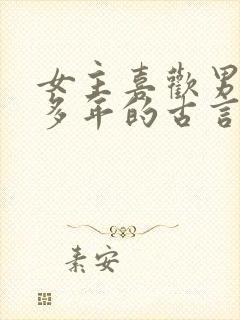 女主喜歡男
多年的古言
素安